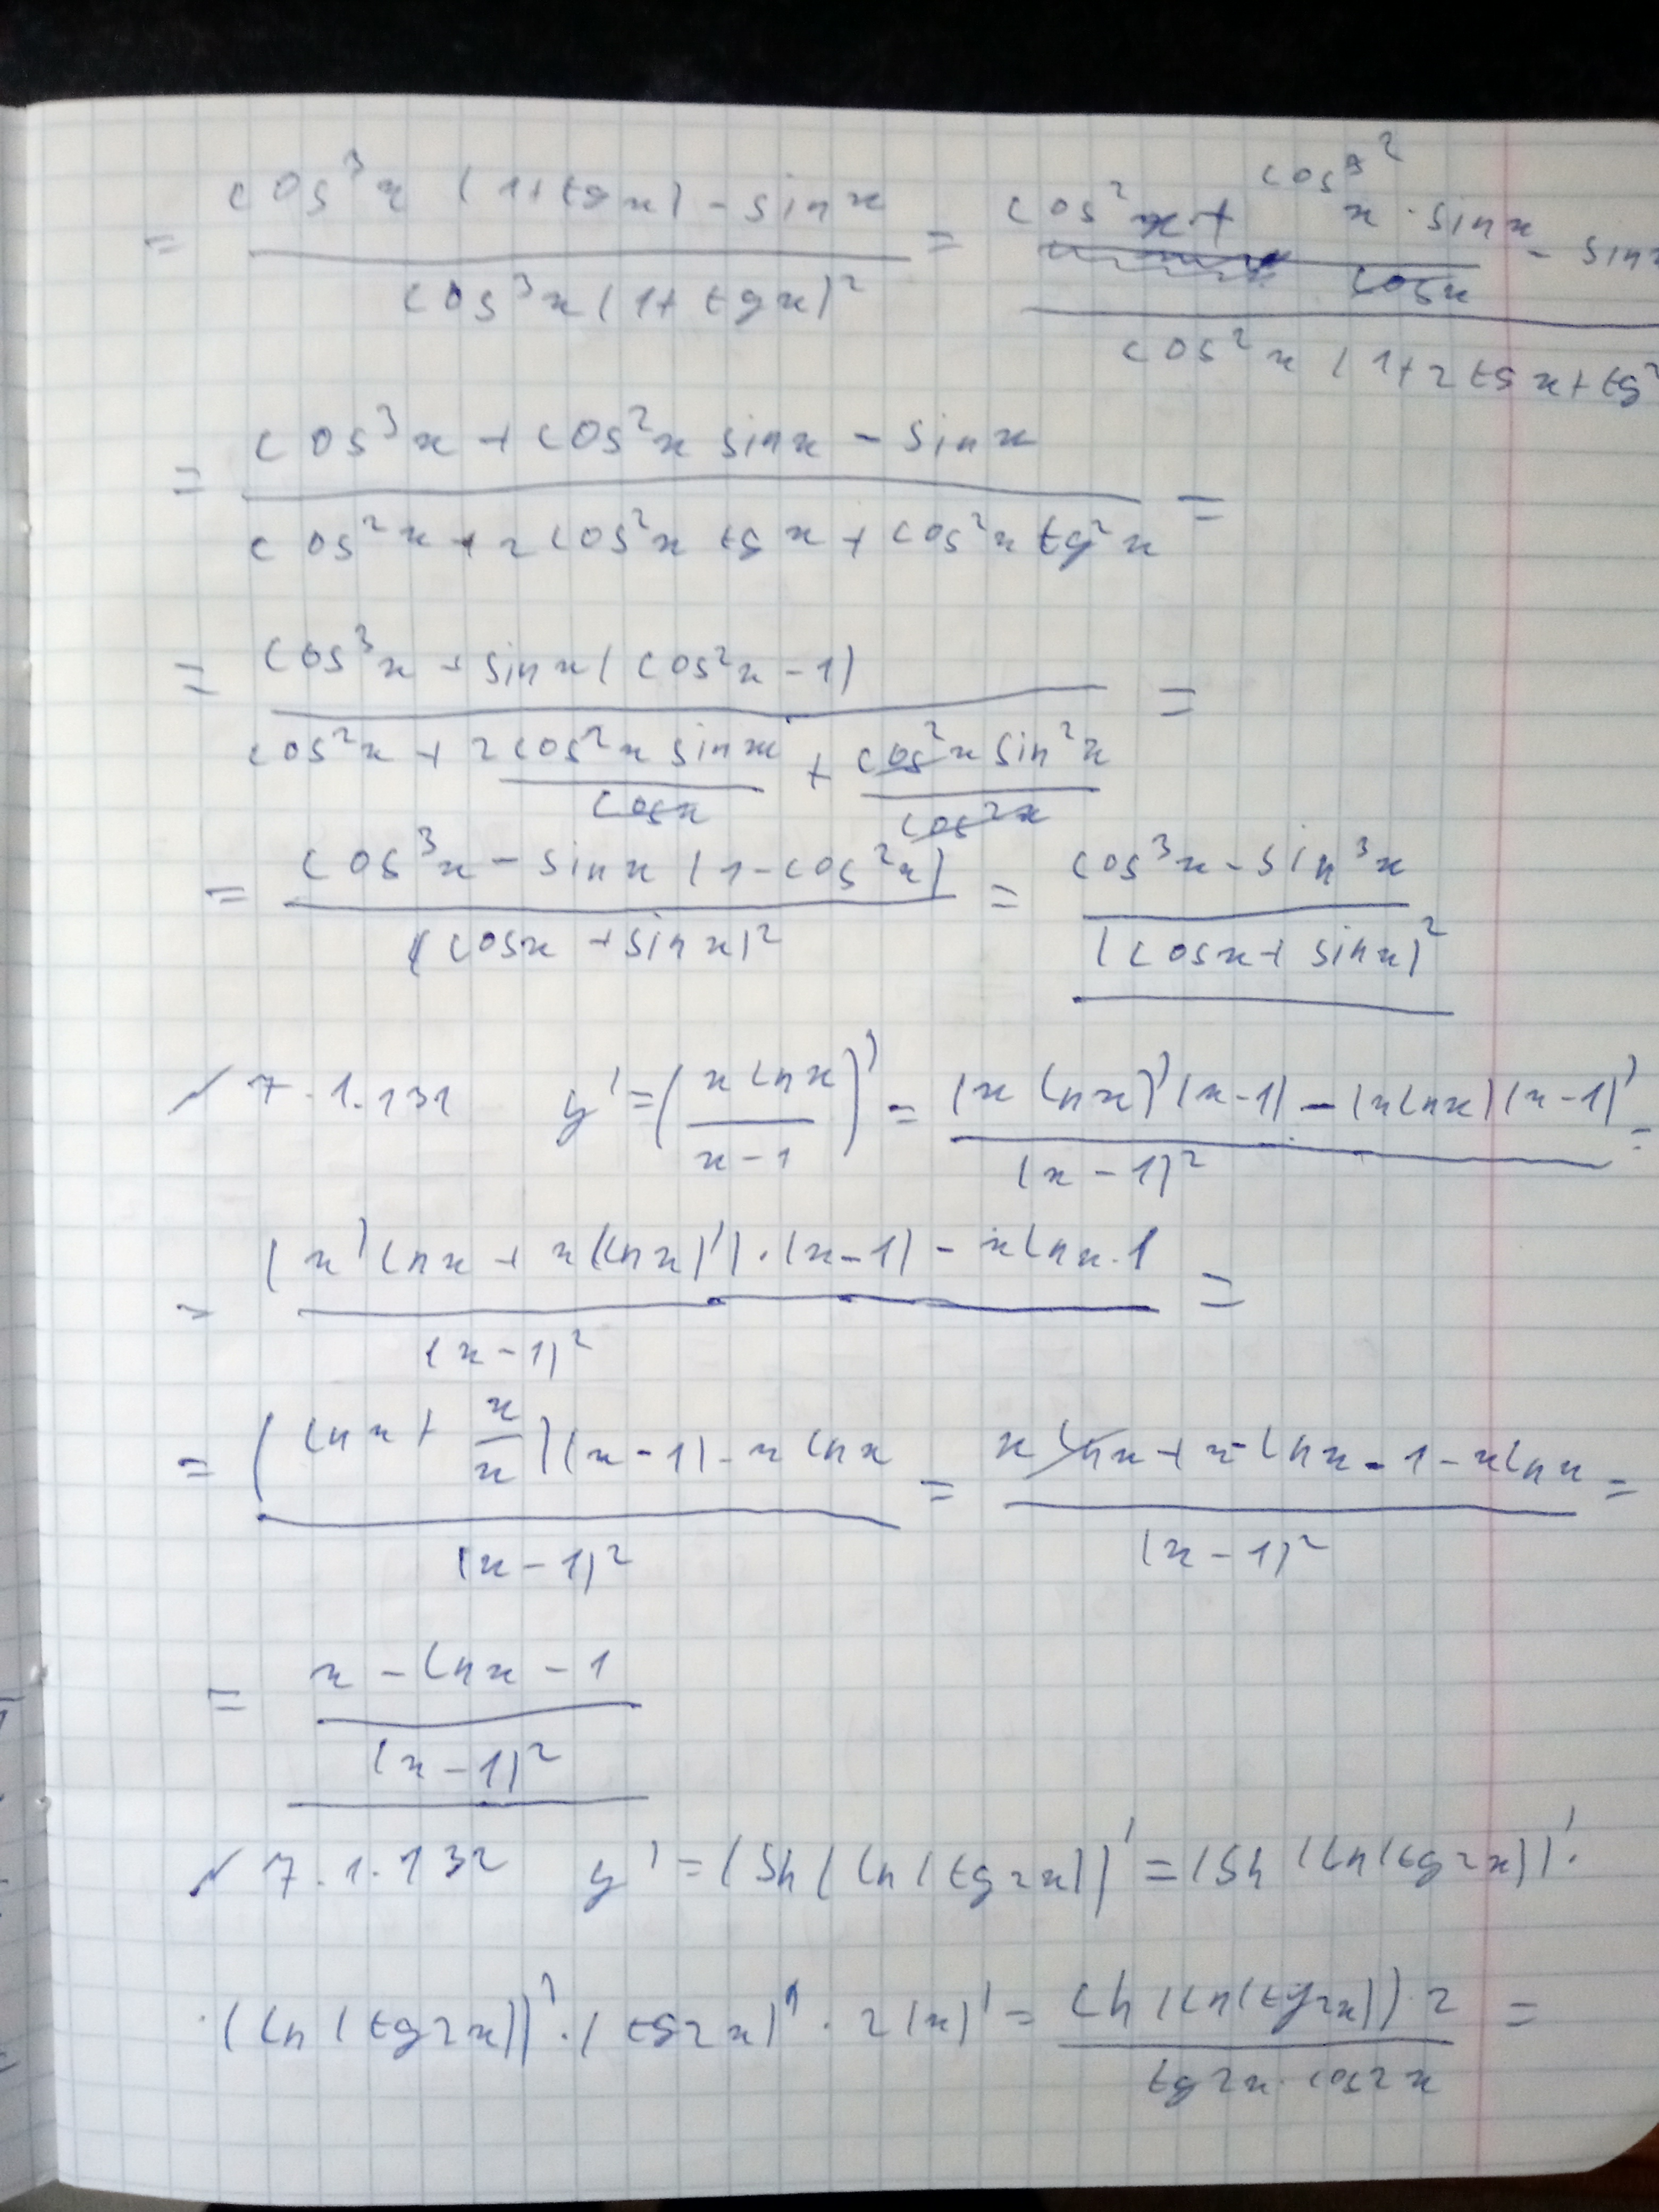 = cos³x (1+tgx) - sinx / cos³x (1+tgx)² = cos²x + cos² x · sinx / cosx - sinx / cos²x (1+2tgx+tg²
= cos³x + cos²x sinx - sinx / cos²x + 2cos²x tgx + cos²x tg²x =
= cos³x + sinx (cos²x - 1) / cos²x + 2cos²x sinx / cosx + cos²x sin²x / cos²x =
= cos³x - sinx (1-cos²x) / (cosx + sinx)² = cos³x - sin³x / (cosx + sinx)²
7.1.131 y' = (x lnx / x-1)' = (x lnx)' (x-1) - (x lnx)(x-1)' / (x-1)² =
= (x' lnx + x(lnx)')·(x-1) - x lnx·1 / (x-1)² =
= (lnx + x/x)(x-1) - x lnx / (x-1)² = x lnx + x - lnx - 1 - x lnx / (x-1)² =
= x - lnx - 1 / (x-1)²
7.1.132 y' = (Sh (ln (tg2x))' = (Sh (ln (tg2x))'·
·(ln (tg2x))' · (tg2x)' · 2(x)' = Ch (ln(tg2x))·2 / tg2x · cos2x =